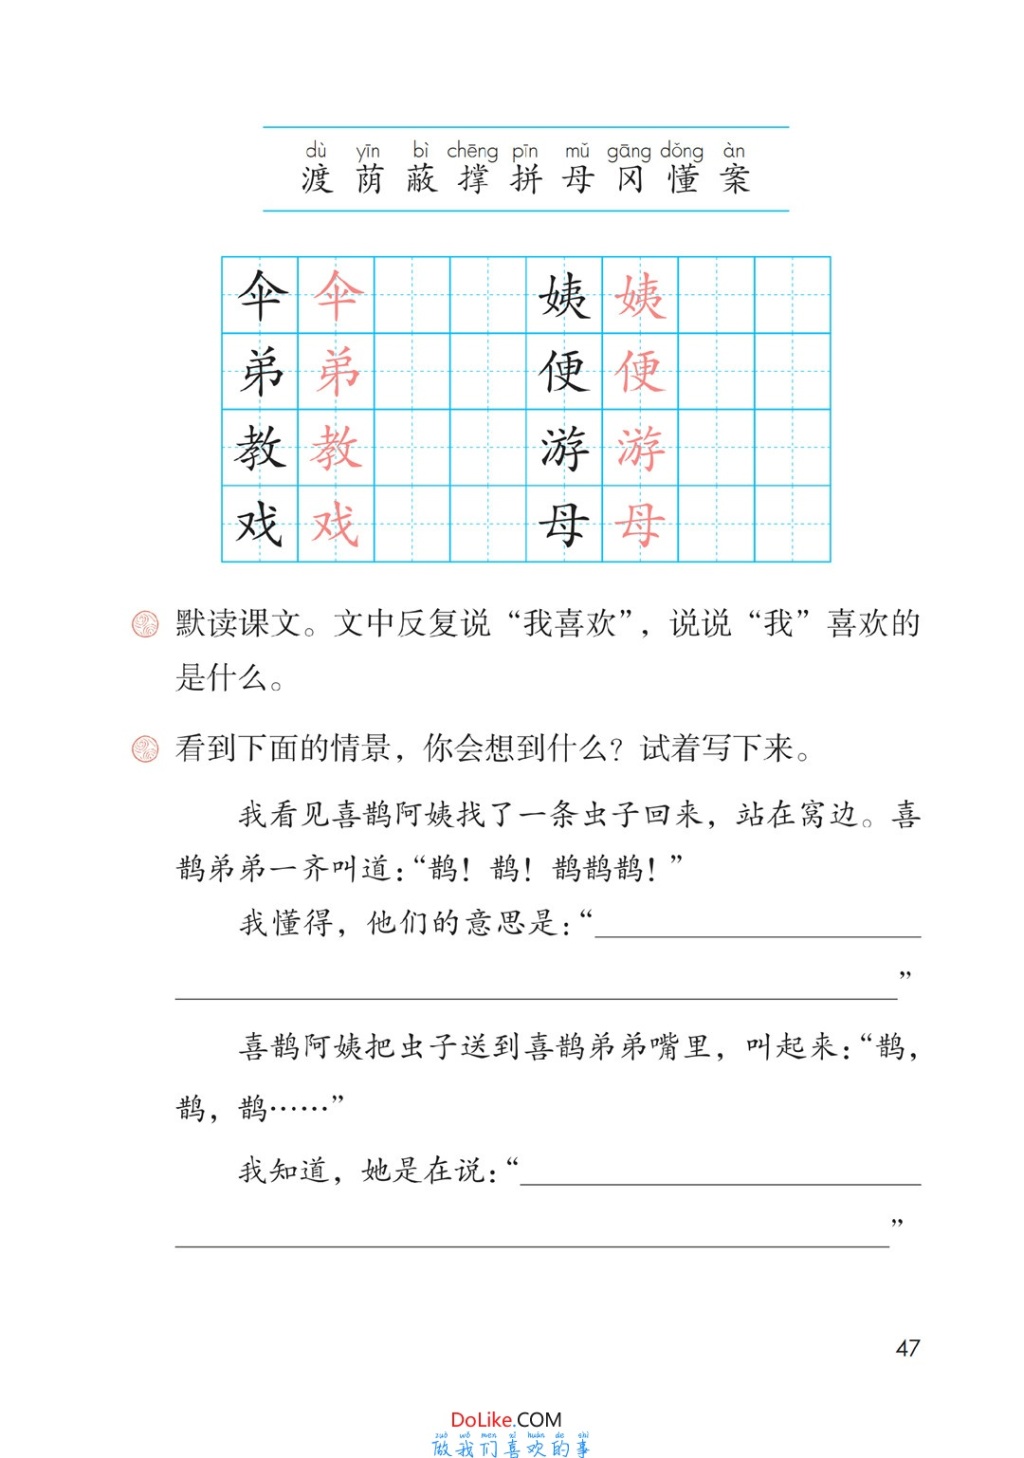 dù yīn bì chēng pīn mǔ gāng dǒng àn
渡 荫 蔽 撑 拼 母 冈 懂 案
伞 伞 姨 姨
弟 弟 便 便
教 教 游 游
戏 戏 母 母
默读课文。文中反复说“我喜欢”，说说“我”喜欢的
是什么。
看到下面的情景，你会想到什么？试着写下来。
我看见喜鹊阿姨找了一条虫子回来，站在窝边。喜
鹊弟弟一齐叫道：“鹊！鹊！鹊鹊鹊！”
我懂得，他们的意思是：“
”
喜鹊阿姨把虫子送到喜鹊弟弟嘴里，叫起来：“鹊，
鹊，鹊……”
我知道，她是在说：“
”
47
DoLike.COM
zuò wǒ men xǐ huān de shì
做我们喜欢的事